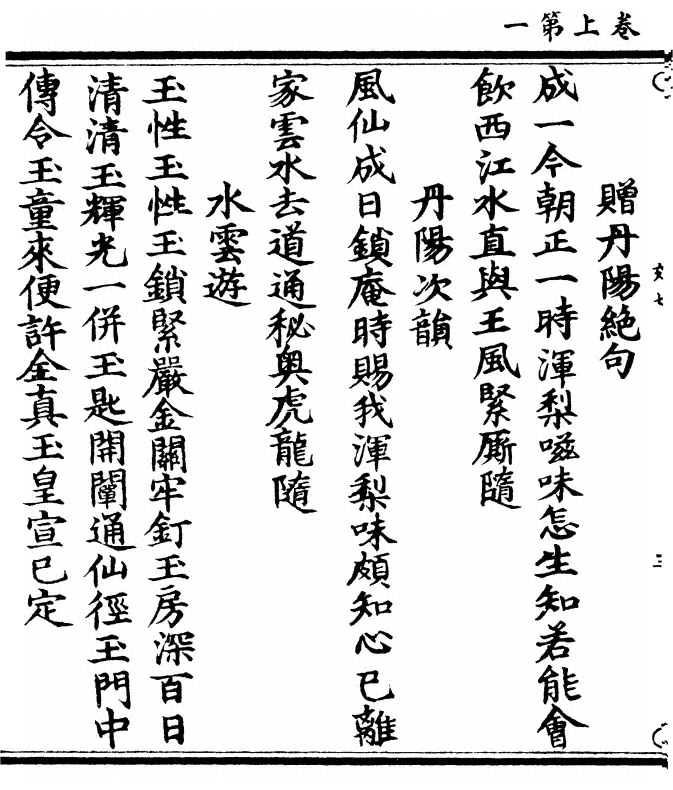 卷上第一
交七
三
贈丹陽絕句
成一今朝正一時渾梨嗞味怎生知若能會
飲西江水直與王風緊厮隨
丹陽次韻
風仙成日鎖庵時賜我渾梨味頗知心已離
家雲水去道通秘奧虎龍隨
水雲遊
玉性玉性玉鎖緊嚴金關牢釘玉房深百日
清清玉輝光一併玉匙開闡通仙徑玉門中
傳令玉童來便許全真玉皇宣已定